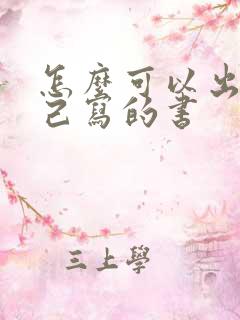 怎麼可以出
己寫的书
三上學